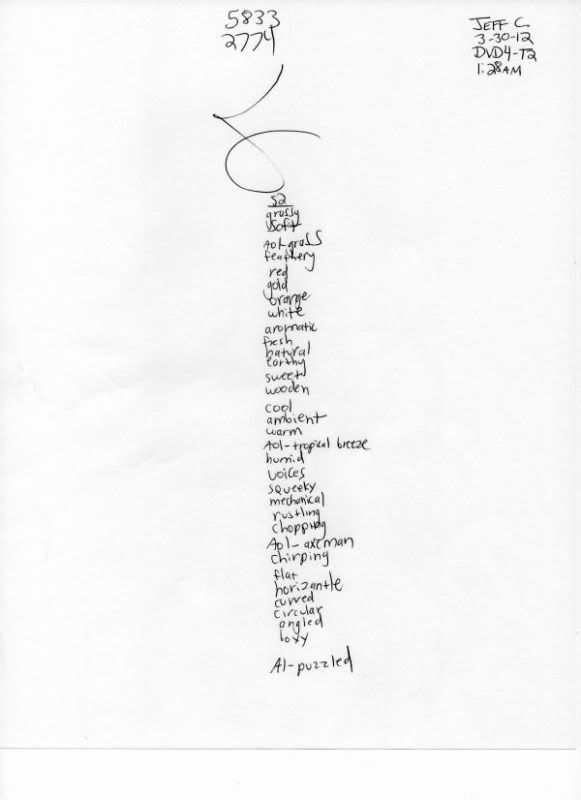 5833
2774
JEFF C.
3-30-12
DVD4-T2
1:28AM
S2
grassy
soft
AOL-grass
feathery
red
gold
orange
white
aromatic
fresh
natural
earthy
sweet
wooden
cool
ambient
warm
AOL-tropical breeze
humid
voices
squeeky
mechanical
rustling
chopping
AOL-axeman
chirping
flat
horizantle
curved
circular
angled
boxy
AI-puzzled